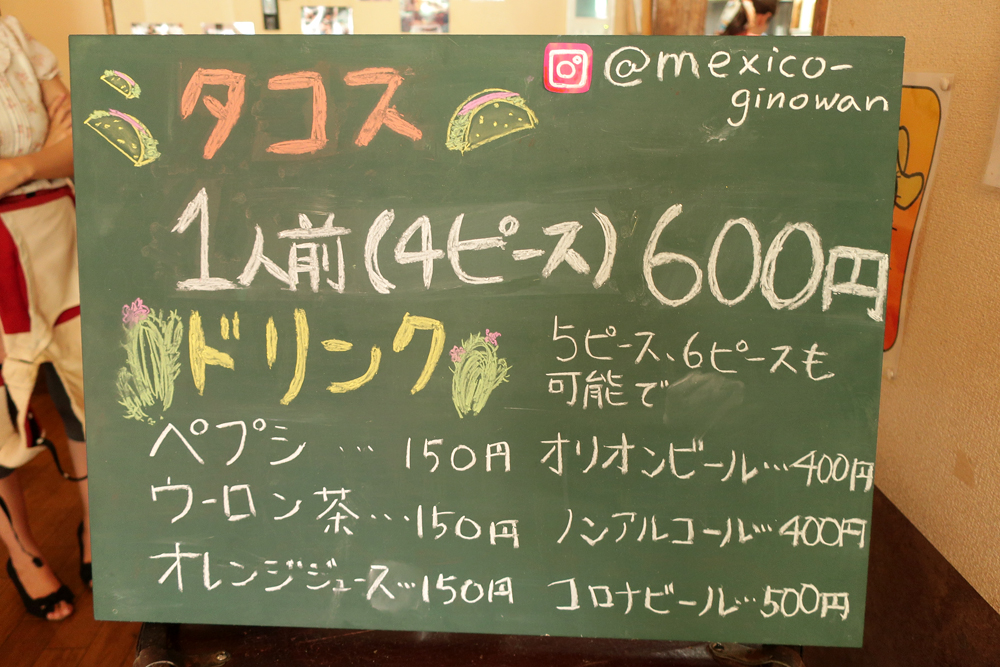 @mexico-
ginowan
タコス
1人前(4ピース)600円
5ピース、6ピースも
可能で
ドリンク
ペプシ … 150円
ウーロン茶…150円
オレンジジュース…150円
オリオンビール…400円
ノンアルコール…400円
コロナビール…500円